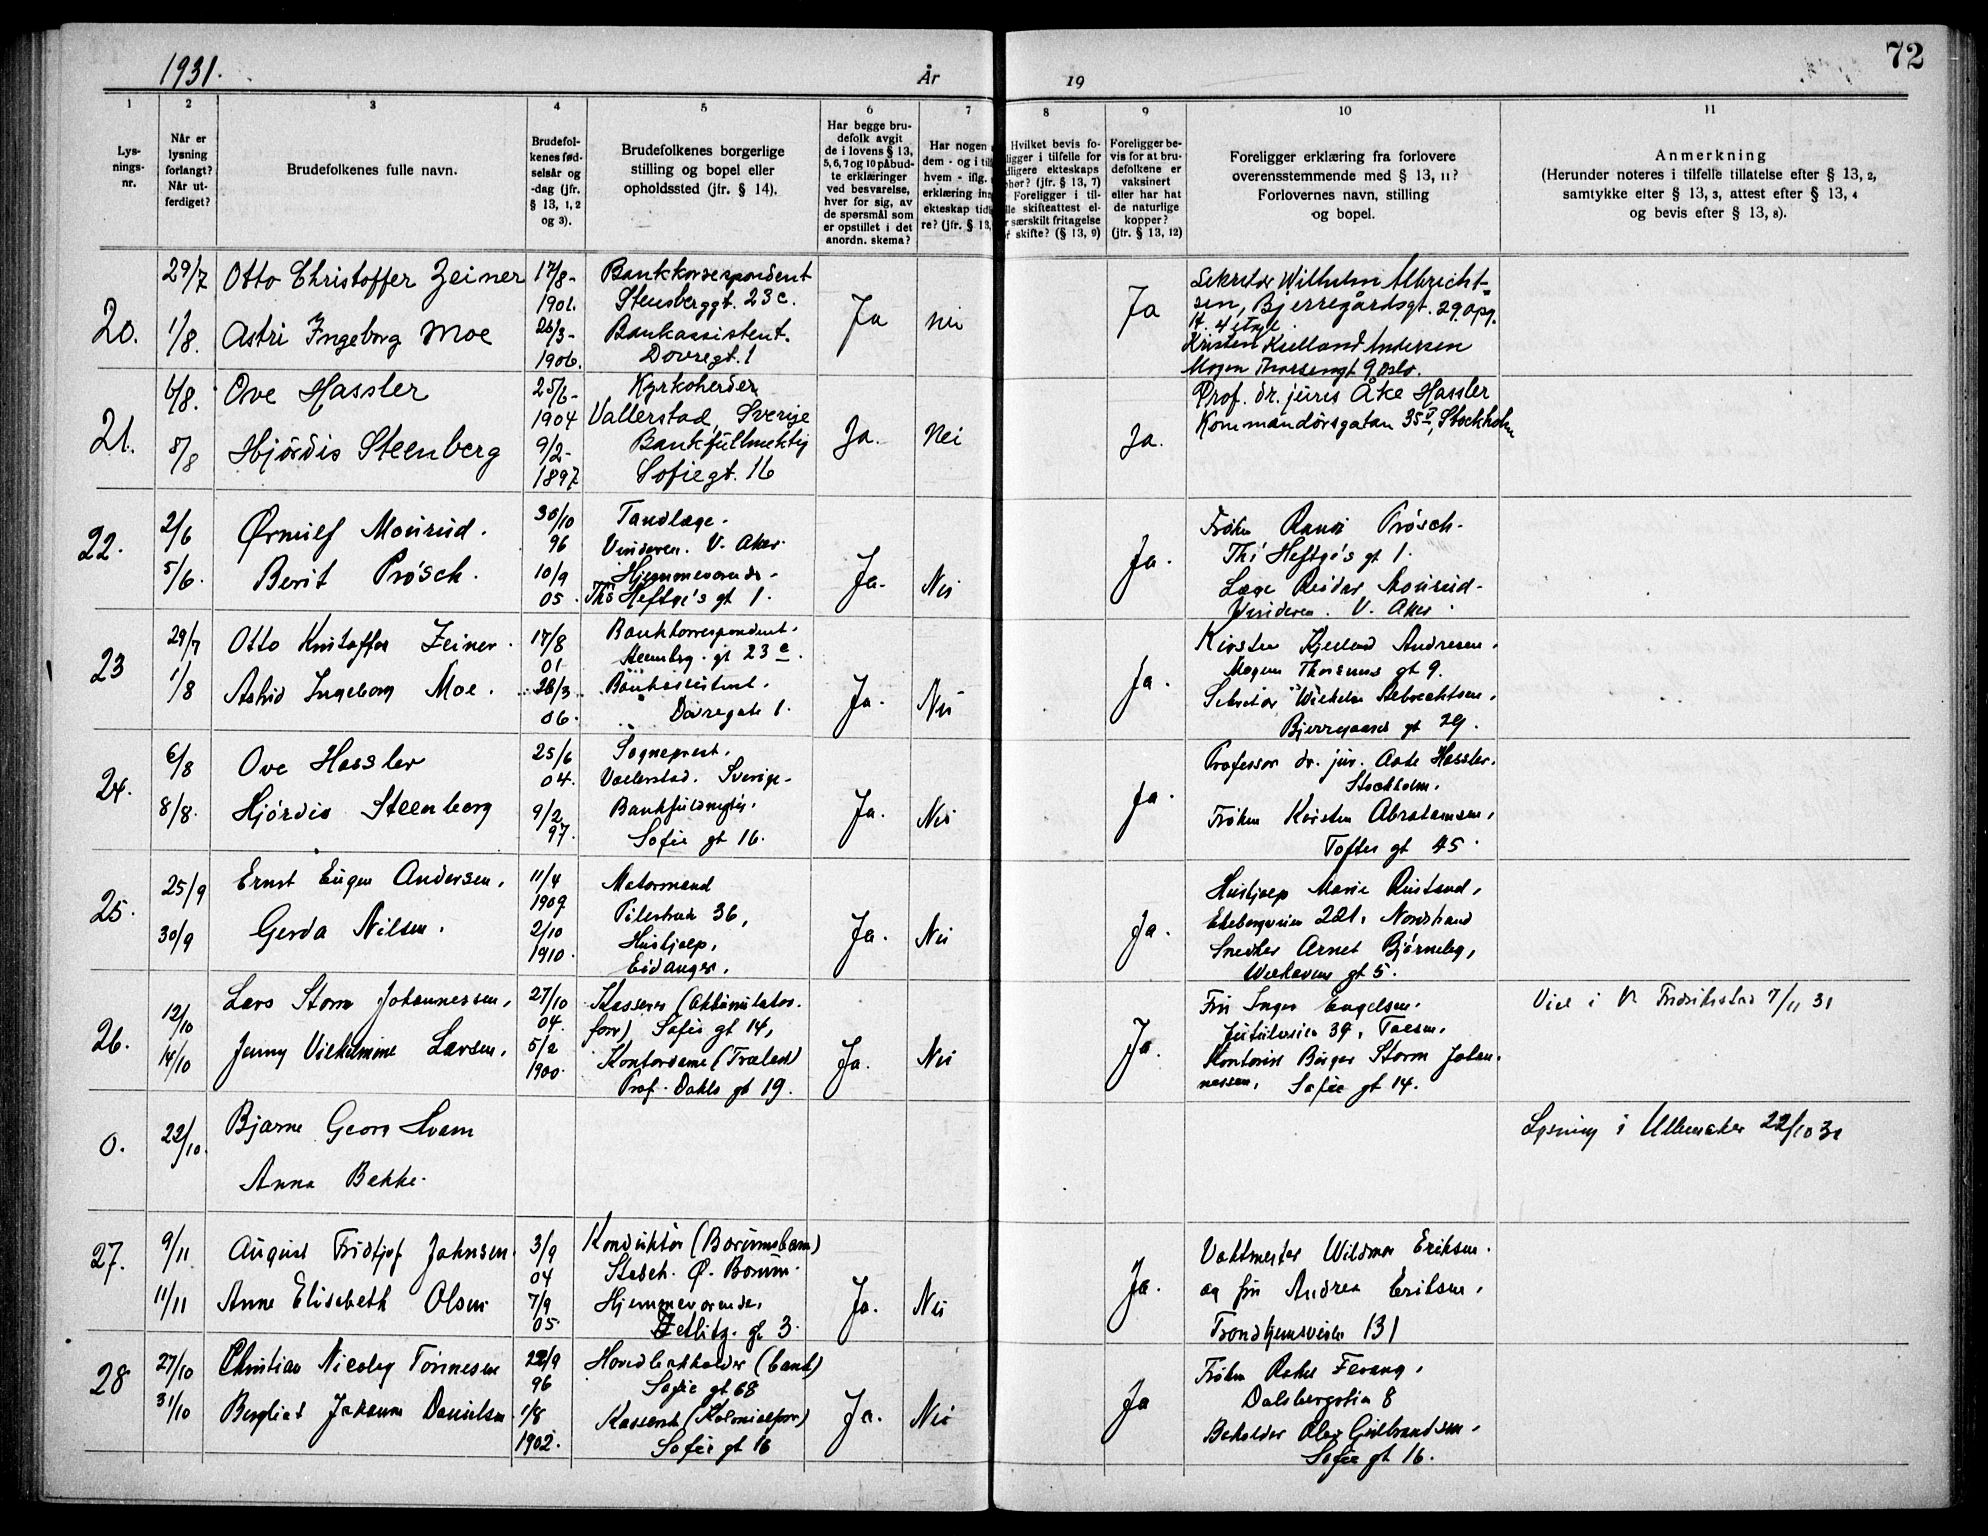 1931. År 19 72
1 2 3 4 5 6 7 8 9 10 11
Lys-
nings-
nr.
Når er
lysning
forlangt?
Når ut-
ferdiget?
Brudefolkenes fulle navn.
Brudefol-
kenes fød-
selsår og
-dag (jfr.
§ 13, 1, 2
og 3).
Brudefolkenes borgerlige
stilling og bopel eller
opholdssted (jfr. § 14).
Har begge bru-
defolk avgit
de i lovens § 13,
5, 6, 7 og 10 påbud-
te erklæringer
ved besvarelse,
hver for sig, av
de spørsmål som
er opstillet i det
anordn. skema?
Har nogen
dem - og i til
hvem - iflg.
erklæring in
ekteskap tid
re? (jfr. § 13,
Hvilket bevis fo-
ligger i tilfelle for
dligere ekteskaps
phør? (jfr. § 13, 7)
Foreligger i til-
lle skifteattest el-
r særskilt fritagelse
r skifte? (§ 13, 9)
Foreligger be-
vis for at bru-
defolkene er
vaksinert
eller har hat
de naturlige
kopper?
(jfr. § 13, 12)
Foreligger erklæring fra forlovere
overensstemmende med § 13, 11?
Forlovernes navn, stilling
og bopel.
Anmerkning
(Herunder noteres i tilfelle tillatelse efter § 13, 2,
samtykke efter § 13, 3, attest efter § 13, 4
og bevis efter § 13, 8).
20.
29/7
1/8.
Otto Christoffer Zeiner
Astri Ingeborg Moe
17/8-
1901.
26/3-
1906.
Bankkorrespondent
Stensberggt. 23c.
Bankassistent.
Dovregt. 1
Ja nei Ja
Sekretær Wilhelm Albricht-
sen, Bjerregårdsgt. 29. opg.
4 etage.
Kristen Kielland Andersen
Mogen Thorsensgt 9 Oslo.
21.
6/8.
8/8
Ove Hassler
Hjördis Steenberg
25/6-
1904
9/2-
1897
Kyrkoherder
Vallerstad, Sverige
Bankfullmektig
Sofiegt. 16
Ja. Nei Ja.
Prof. dr. juris Åke Hassler
Kommandörsgatan 35 V, Stockholm
22.
2/6
5/6.
Ørnulf Mourud.
Berit Prösch.
30/10
96
10/9
05.
Tandlæge.
Vinderen. V. Aker.
Hjemmeværende-
Ths Heftye's gt 1.
Ja. Nei Ja.
Frøken Randi Prösch-
Th's Heftye's gt 1.
Læge Reidar Mourud-
Vinderen. V. Aker.
23
29/7
1/8
Otto Kristoffer Zeiner.
Astrid Ingeborg Moe.
17/8
01
26/3
06.
Bankkorrespondent.
Steensbg. gt 23 c.
Bankassistent.
Dovregate 1.
Ja. Nei Ja.
Kirsten Kjelland Andresen.
Mogens Thorsens gt 9.
Sekretær Wilhelm Albrechtsen,
Bjerregaards gt 29.
24.
6/8
8/8.
Ove Hassler
Hjördis Steenberg
25/6
04.
9/2
97.
Sogneprest.
Vallerstad. Sverige-
Bankfuldmægtig.
Sofie gt 16.
Ja. Nei Ja.
Professor dr. jur. Aake Hassler.
Stockholm.
Frøken Kirsten Abrahamsen,
Toftes gt 45.
25.
25/9
30/9
Ernst Eugen Andersen.
Gerda Nilsen.
11/4
1909
2/10
1910.
Motormand
Pilestræde 36,
Hushjælp,
Eidanger.
Ja. Nei Ja.
Hushjælp Marie Rustand,
Ekebergveien 221, Nordstrand
Snedker Arnet Bjørneby,
gt 5.
26.
12/10
14/10
Lars Storm Johannessen,
Jenny Vilhelmine Larsen.
27/10
04.
5/2
1900.
Kasserer (Akkumulator.
forr) Sofie gt 14,
Kontordame (Trælast)
Prof. Dahls gt 19.
Ja. Nei Ja.
Fru Inger Engelsen.
39, Taasen.
Kontorist Birger Storm Johan-
nessen, Sofie gt 14.
Viet i V. Fredrikstad 7/11 31
0.
22/10.
Bjarne Georg Hvam
Anna Bekke.
Lysning i Ullensaker 22/10 31
27.
9/11
11/11
August Fridtjof Johnsen.
Anne Elisabeth Olsen
3/9
04
7/9
05.
Konduktør (Bærumsbanen)
Stabek. Ø. Bærum.
Hjemmeværende.
Zetlitz. gt 3.
Ja. Nei Ja.
Vaktmester Wildmar Eriksen.
og fru Andrea Eriksen,
Trondhjemsveien 131
28
27/10
31/10
Christian Nicolay Tønnesen
Bergliot Johanne Danielsen.
22/9
96
1/8
1902.
Hovedbokholder (bank)
Sofie gt 68
Kassererske (Kolonialforr)
Sofie gt 16
Ja. Nei Ja
Frøken Rakel Ferang,
Dalsbergstien 8
Bokholder Olav Gulbrandsen,
Sofie gt 16.